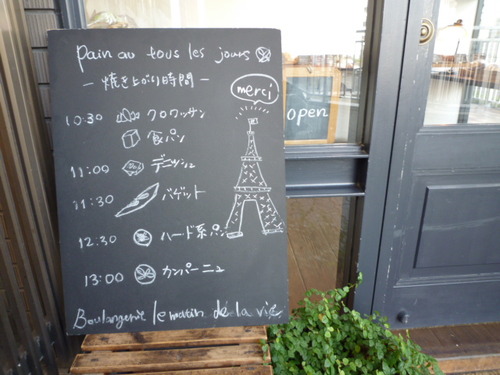 Pain au tous les jours
― 焼き上がり時間 ―
merci
open
10:30 クロワッサン
食パン
11:00 デニッシュ
11:30 バゲット
12:30 ハード系パン
13:00 カンパーニュ
Boulangerie le matin de la vie